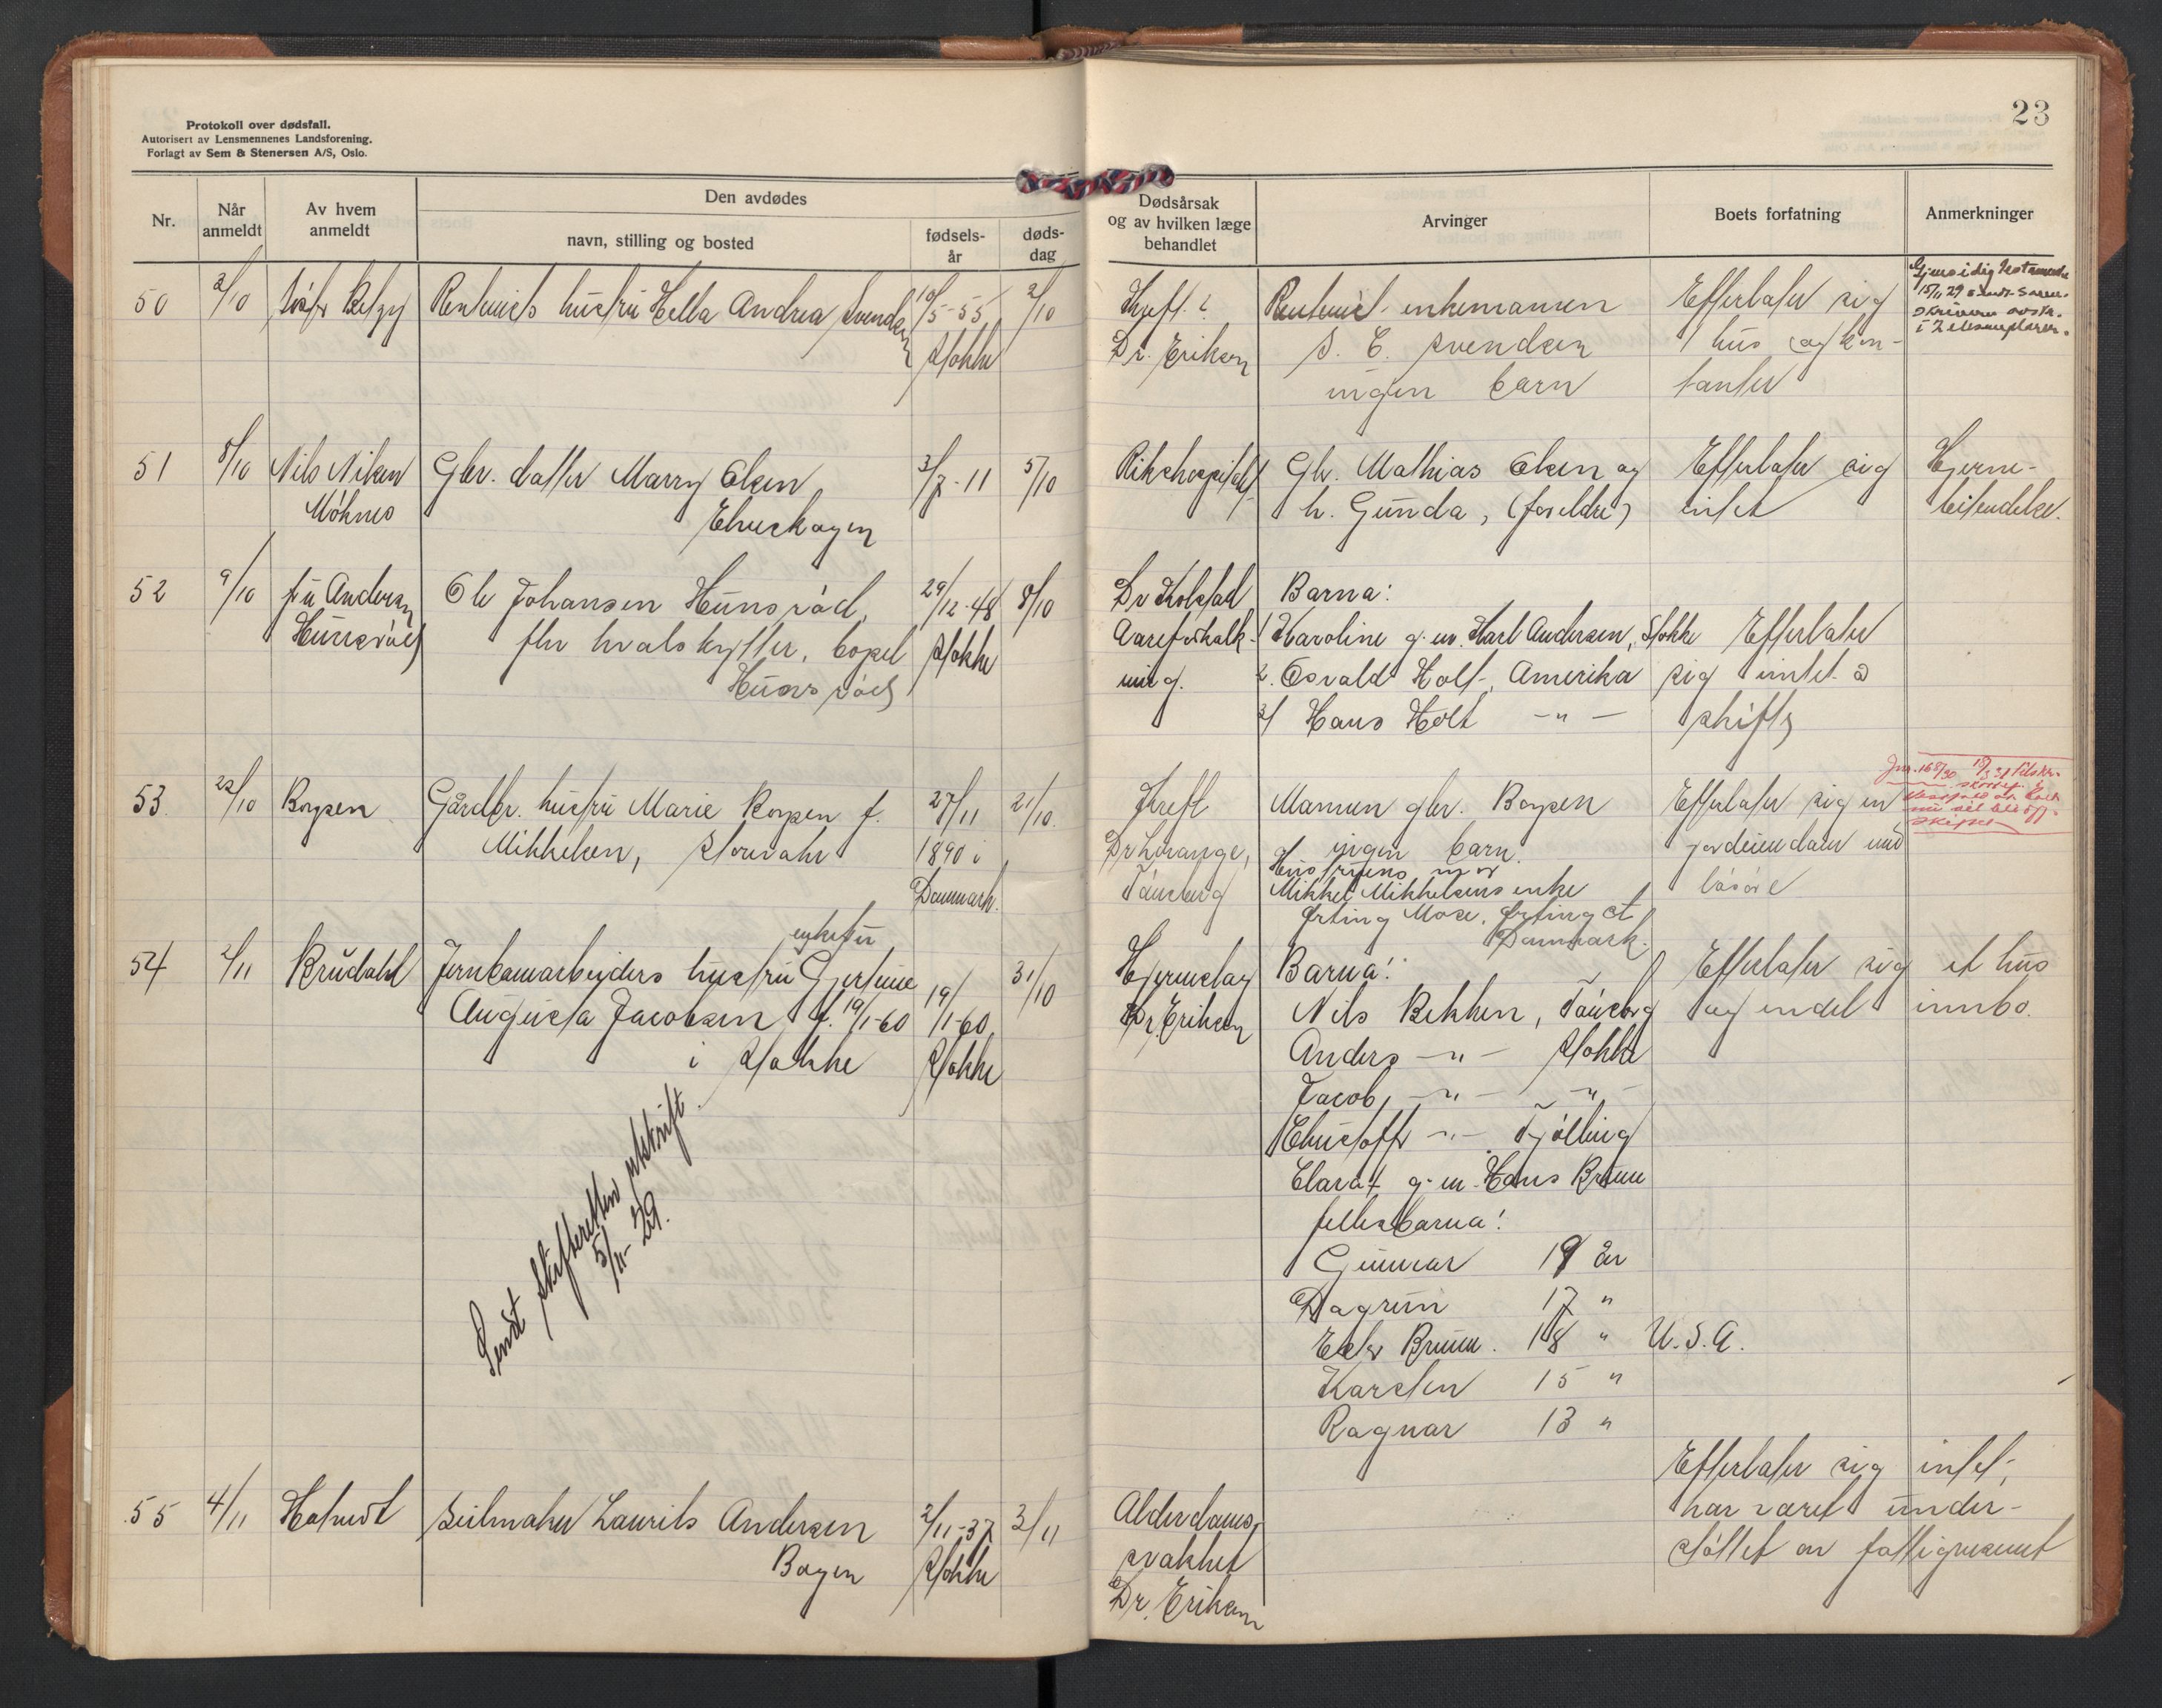 Protokoll over dødsfall.
Autorisert av Lensmennenes Landsforening.
Forlagt av Sem & Stenersen A/S, Oslo.
23
Nr.
Når anmeldt
Av hvem anmeldt
Den avdødes
navn, stilling og bosted
fødsels-år
døds-dag
Dødsårsak og av hvilken læge behandlet
Arvinger
Boets forfatning
Anmerkninger
50 2/10 hustru Hella Andrea Svendsen 10/5-55 2/10
Stokke
Dr. Eriksen
enkemannen
S. C. Svendsen
ingen barn
Efterlater sig
1 hus og kon-
tanter
Gjensidig Testamente
15/11 29 sendt Soren-
skriveren avskr.
i 2 eksemplarer.
51 8/10 Nils Nilsen Gbr. datter Marry Olsen 3/7-11 5/10
Rikshospitalet Gbr. Mathias Olsen og Efterlater sig Hjerne-
h. Gunda, (foreldre) intet betendelse.
52 9/10 fru Andersen Ole Johansen Hunsrød, 29/12-48 8/10
Hunsrød fhv hvalskytter, bopel Stokke
Hunsrød
Dr Kolstad Barna:
Aareforkalk- 1 Karoline g. m. Karl Andersen, Stokke Efterlater
ning. 2. Osvald Holt, Amerika sig intet å
3/ Hans Holt -"- skifte
53. 22/10 Borgen Gårdbr. hustru Marie Borgen f. 27/11 21/10.
Mikkelsen, 1890 i
Danmark.
Kreft Mannen gbr. Borgen Efterlater sig en
Dr Lorange, ingen barn. jordeiendom med
Tønsberg Hustruens mor løsøre
Mikkel Mikkelsens enke
Ørting Mose, Ørting St
Danmark.
Jnr. 168/30
54 2/11 Brudahl enkefru
Jernbanearbeiders hustru Gjertine 19/ 31/10
Augusta Jacobsen, f. 19/1-60 1-60,
i Stokke Stokke
Sendt skifteretten utskrift
5/11-29.
Hjerneslag Barna: Efterlater sig et hus
Dr Eriksen Nils Bekken, Tønsberg og endel innbo.
Anders -"- Stokke
Jacob, -"- -"-
-"- Tjølling
Clara g. m. Hans Bruun
fellesbarna:
Gunnar 19 år
Dagrun 17 "
Bruun. 18 " U.S.A.
Karsten 15 "
Ragnar 13 "
55 4/11 Seilmaker Laurits Andersen 2/11-37 3/11
Bogen Stokke
Alderdoms-
svakhet
Dr. Eriksen
Efterlater sig intet,
har været under-
støttet av fattigvesenet